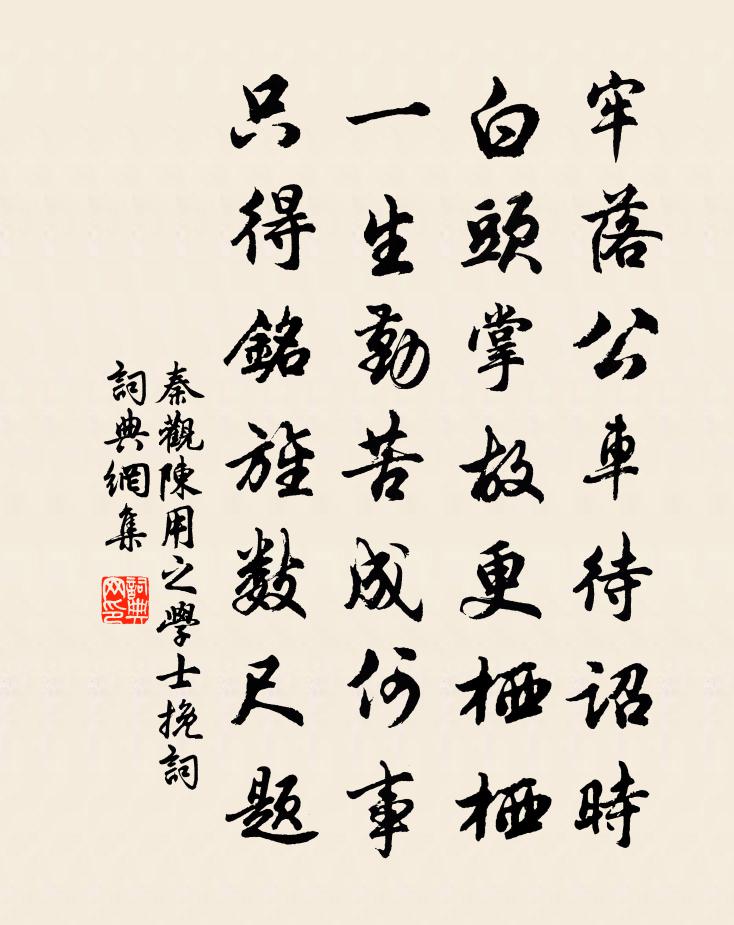 牢落公車待詔時
白頭掌故更栖栖
一生勤苦成何事
只得銘旌數尺題
秦觀陳用之學士挽詞
詞典網集
詞典网印